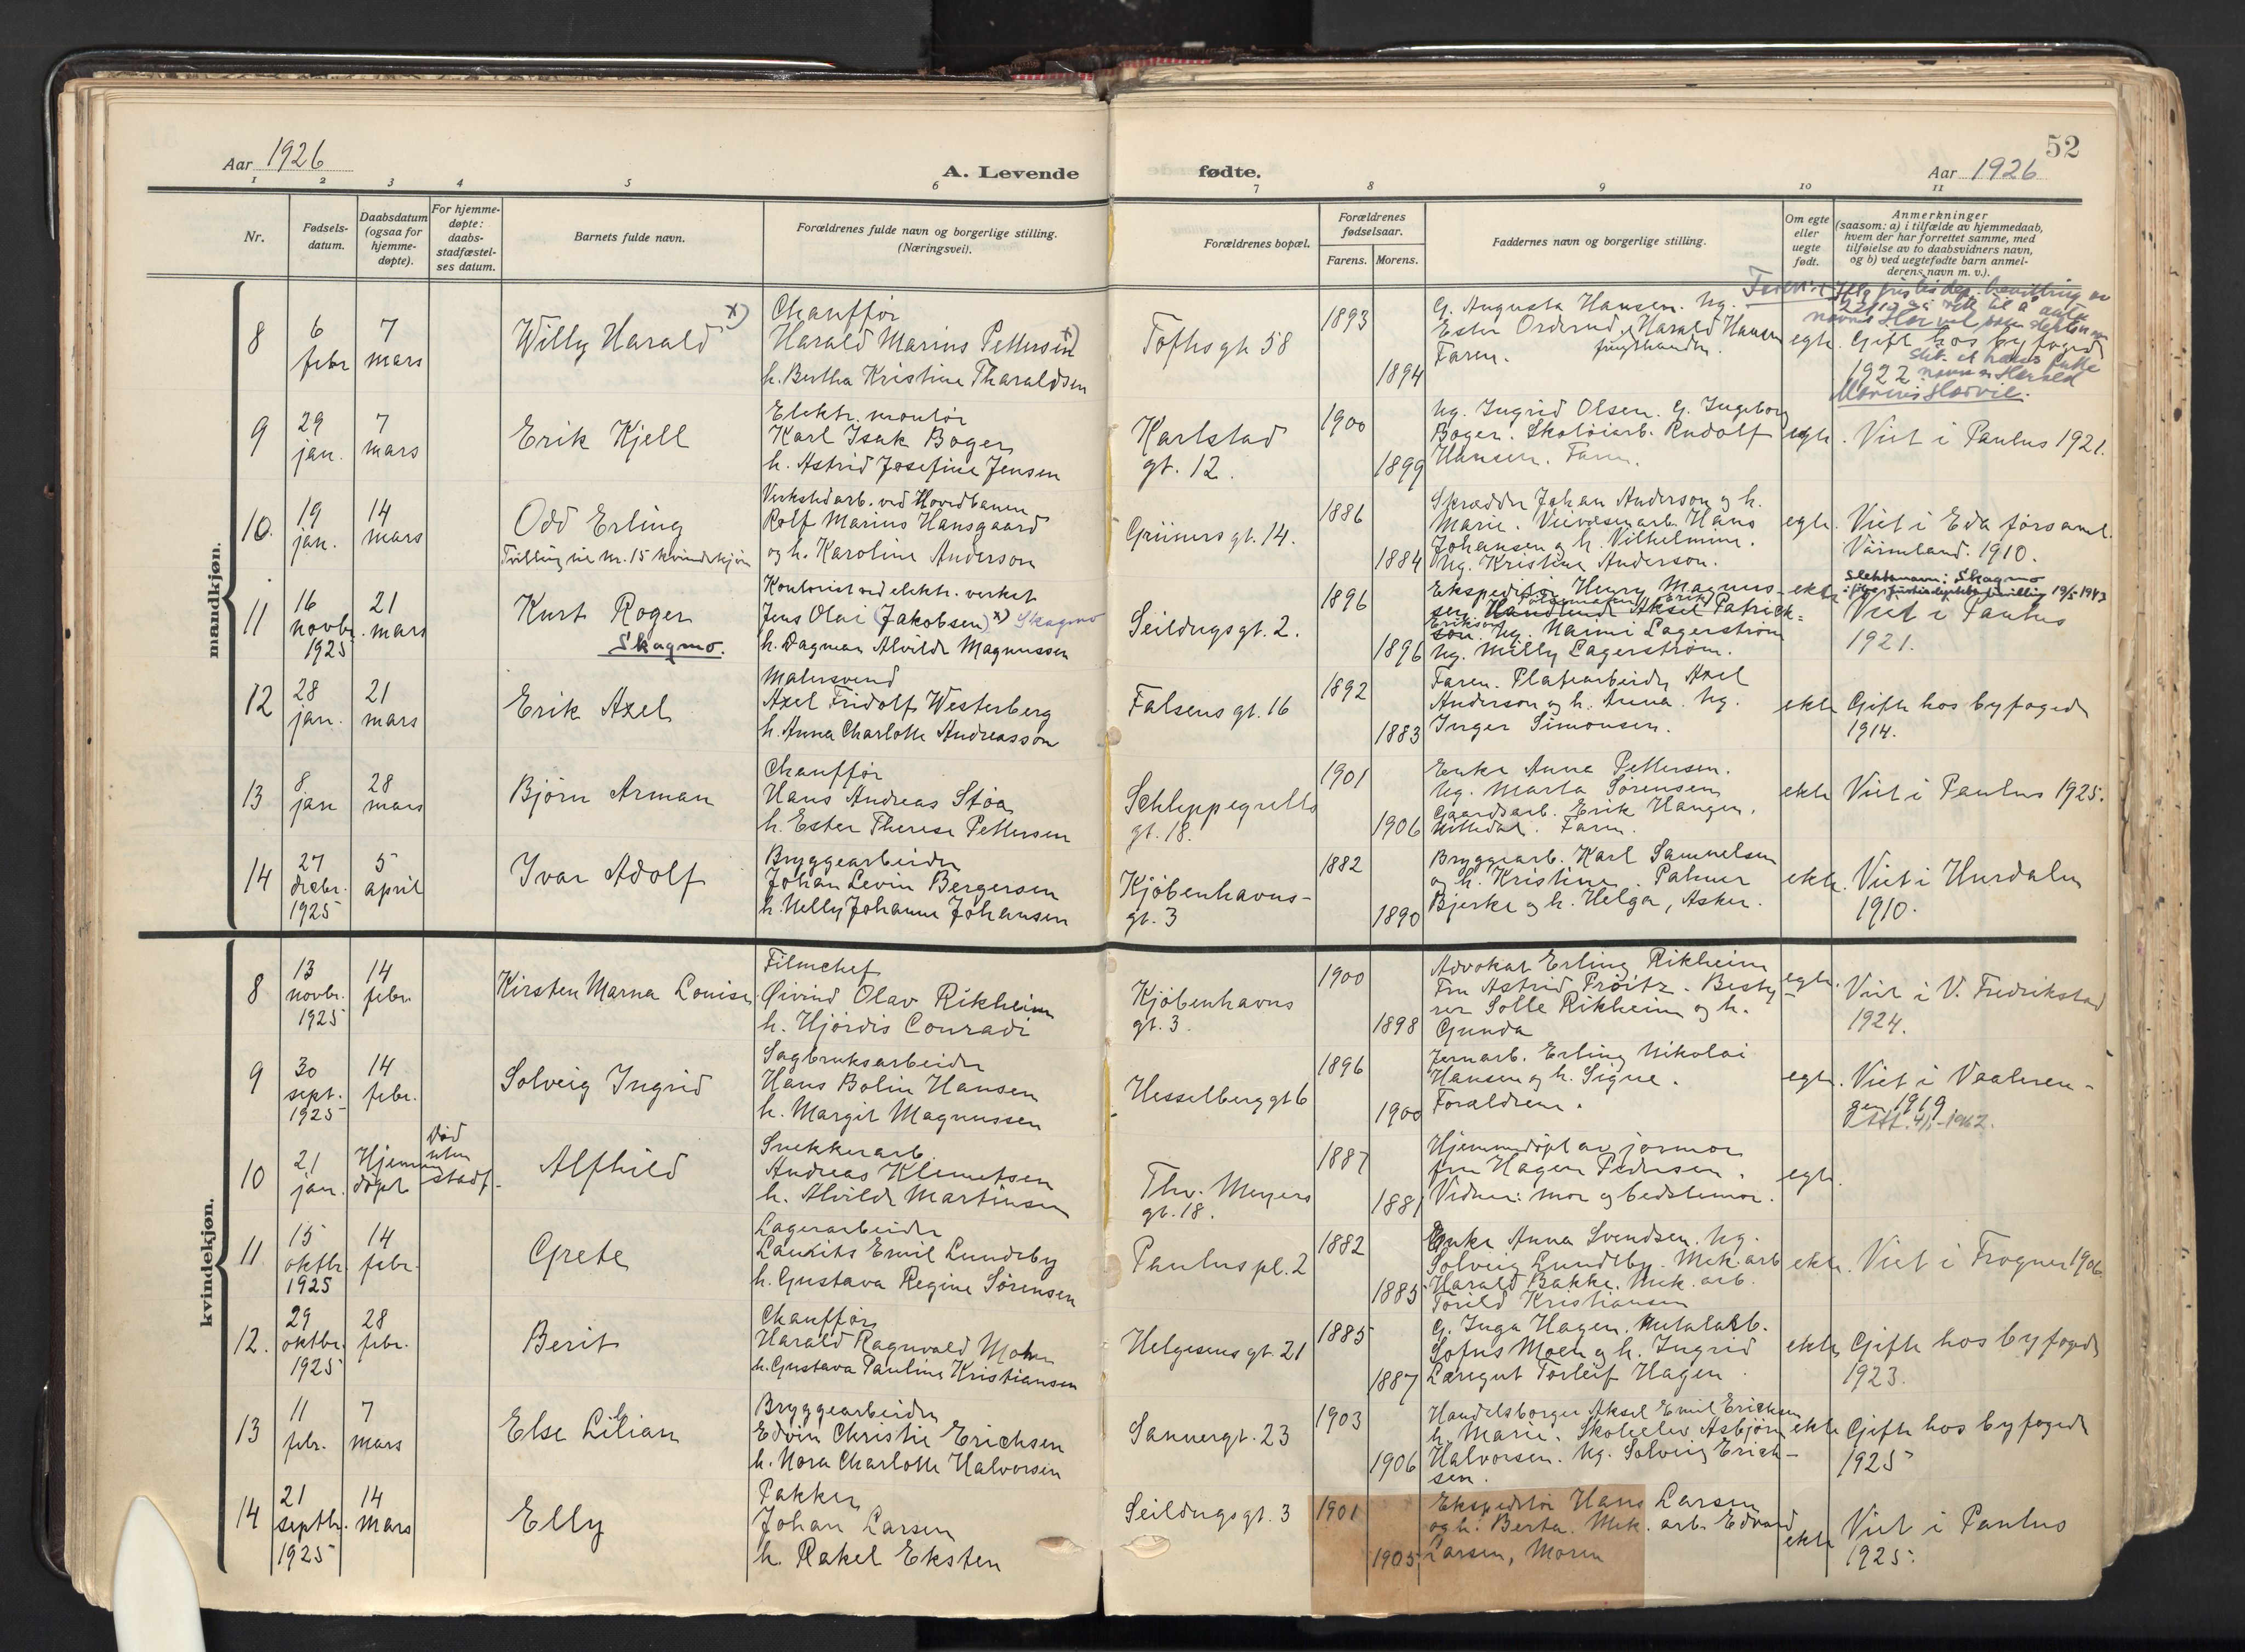 52
Aar 1926
A. Levende fødte.
Aar 1926
1 2 3 4 5 6 7 8 9 10 11
Nr.
Fødsels-
datum.
Daabsdatum
(ogsaa for
hjemme-
døpte).
For hjemme-
døpte:
daabs-
stadfæstel-
ses datum.
Barnets fulde navn.
Forældrenes fulde navn og borgerlige stilling.
(Næringsvei).
Forældrenes bopæl.
Forældrenes
fødselsaar.
Farens. Morens.
Faddernes navn og borgerlige stilling.
Om egte
eller
uegte
født.
Anmerkninger
(saasom: a) i tilfælde av hjemmedaab,
hvem der har forrettet samme, med
tilføielse av to daabsvidners navn,
og b) ved uegtefødte barn anmel-
derens navn m. v.).
mandkjøn.
8
6
febr
7
mars
Willy Harald x)
Chauffør
Harald Marius Pettersen x)
h. Bertha Kristine Tharaldsen
Toftesgt 58
1893
1894
G. Augusta Hansen. Ug.
Ester Orderud, Harald Hansen
Faren.
egte.
Gift hos byfoged
1922
navn er Harald
9
29
jan.
7
mars
Erik Kjell
Elektr. montør
Karl Isak Boger
h. Astrid Josefine Jensen
Karlstad
gt. 12.
1900
1899
Ug. Ingrid Olsen. G. Ingeborg
Boger. Skotøiarb. Rudolf
Hansen. Faren.
egte.
Viet i Paulus 1921.
10.
19
jan.
14
mars
Odd Erling
Tvilling til nr. 15 kvindekjøn
Verkstedarb. ved Hovedbanen
Rolf Marius Hansgaard
og h. Karoline Anderson
Grüners gt. 14.
1886
1884
Skrædder Johan Anderson og h.
Marie. Veivæsenarb. Hans
Johansen og h. Vilhelmine.
Ug. Kristine Anderson.
egte.
Viet i Eda församl.
Värmland. 1910.
11
16
novbr.
1925
21
mars
Kurt Roger
Skagmo.
Kontorist ved elektr. verket
Jens Olai (Jakobsen) x) Skagmo
h. Dagmar Alvilde Magnussen
Seildugsgt. 2.
1896
1896
Ekspeditør Henry Magnus-
sen. Aksel Patrick
Erikson
Ug. Naimi Lagerstrøm
Ug. Milly Lagerstrøm.
ekte
Slektsnavn: Skagmo
i følge justisdepartets bevilling 19/5 1943
Viet i Paulus
1921.
12
28
jan.
21
mars
Erik Axel
Malersvend
Axel Fridolf Westerberg
h. Anna Charlotte Andreasson
Falsens gt. 16
1892
1883
Faren. Platearbeider Axel
Anderson og h. Anna. Ug.
Inger Simonsen.
ekte
Gifte hos byfoged
1914.
13
8
jan
28
mars
Bjørn Arman
Chauffør
Hans Andreas Støa
h. Ester Therese Pettersen
Schleppegrells
gt. 18.
1901
1906
Enke Anna Pettersen.
Ug. Marta Sørensen
Gaardsarb. Erik Haugen,
Nittedal. Faren.
ekte
Viet i Paulus 1925.
14
27
decbr.
1925
5
april
Ivar Adolf
Bryggearbeider
Johan Levin Bergersen
h. Nelly Johanne Johansen
Kjøbenhavns-
gt. 3
1882
1890
Bryggearb. Karl Samuelsen
og h. Kristine. Palmer
Bjerke og h. Helga, Asker.
ekte.
Viet i Hurdalen
1910.
kvindekjøn.
8
13
novbr.
1925
14
febr.
Kirsten Marna Louise
Filmchef
Øivind Olav Rikheim
h. Hjørdis Conradi
Kjøbenhavns
gt. 3.
1900
1898
Advokat Erling Rikheim
Fru Astrid Prøitz. Besty
rer Solle Rikheim og h.
Gunda
egte.
Viet i V. Fredrikstad
1924.
9
30
sept.
1925
14
febr.
Solveig Ingrid
Sagbruksarbeider
Hans Bolin Hansen
h. Margit Magnussen
Hesselberggt 6
1896
1900
Jernarb. Erling Nikolai
Hansen og h. Signe.
Forældrene.
egte.
Viet i Vaaleren-
gen 1919
10
21
jan.
Hjemme
døpt
Død
uten
stadf.
Alfhild
Snekkerarb.
Andreas Klemetsen
h. Alvilde Martinsen
Thv. Meyers
gt. 18.
1887
1881
Hjemmedøpt av jormor
fru Hagen Pedersen.
Vidner: mor og bedstemor.
egte.
11
15
oktbr.
1925
14
febr.
Grete
Lagerarbeider
Laurits Emil Lundeby
h. Gustava Regine Sørensen
Paulus pl. 2
1882
1885
Enke Anna Svendsen. Ug.
Solveig Lundeby. Mek. arb
Harald Bakke. Mek. arb.
Torild Kristiansen
ekte.
Viet i Frogner 1906
12.
29
oktbr.
1925
28
febr.
Berit
Chauffør
Harald Ragnvald Moen
h. Gustava Pauline Kristiansen
Helgesens gt. 21
1885
1887
G. Inga Hagen. Metalarb.
Sofus Moen og h. Ingrid
Læregut Torleif Hagen
ekte
Gifte hos byfoged
1923.
13
11
febr.
7
mars
Else Lilian
Bryggearbeider
Edvin Christie Erichsen
h. Nora Charlotte Halvorsen
Sannergt. 23
1903
1906
Handelsborger Aksel Emil Erichsen
h. Marie. Skoleelev Asbjørn
Halvorsen. Ug. Solveig Erich-
sen.
ekte
Gifte hos byfoged
1925
14
21
septbr.
1925
14
mars
Elly
Pakker
Johan Larsen
h. Rakel Eksten
Seildugsgt. 3
1901
1905
Ekspeditør Hans Larsen
og h. Berta. Mek. arb. Edvard
Larsen, Moren
ekte
Viet i Paulus
1925.